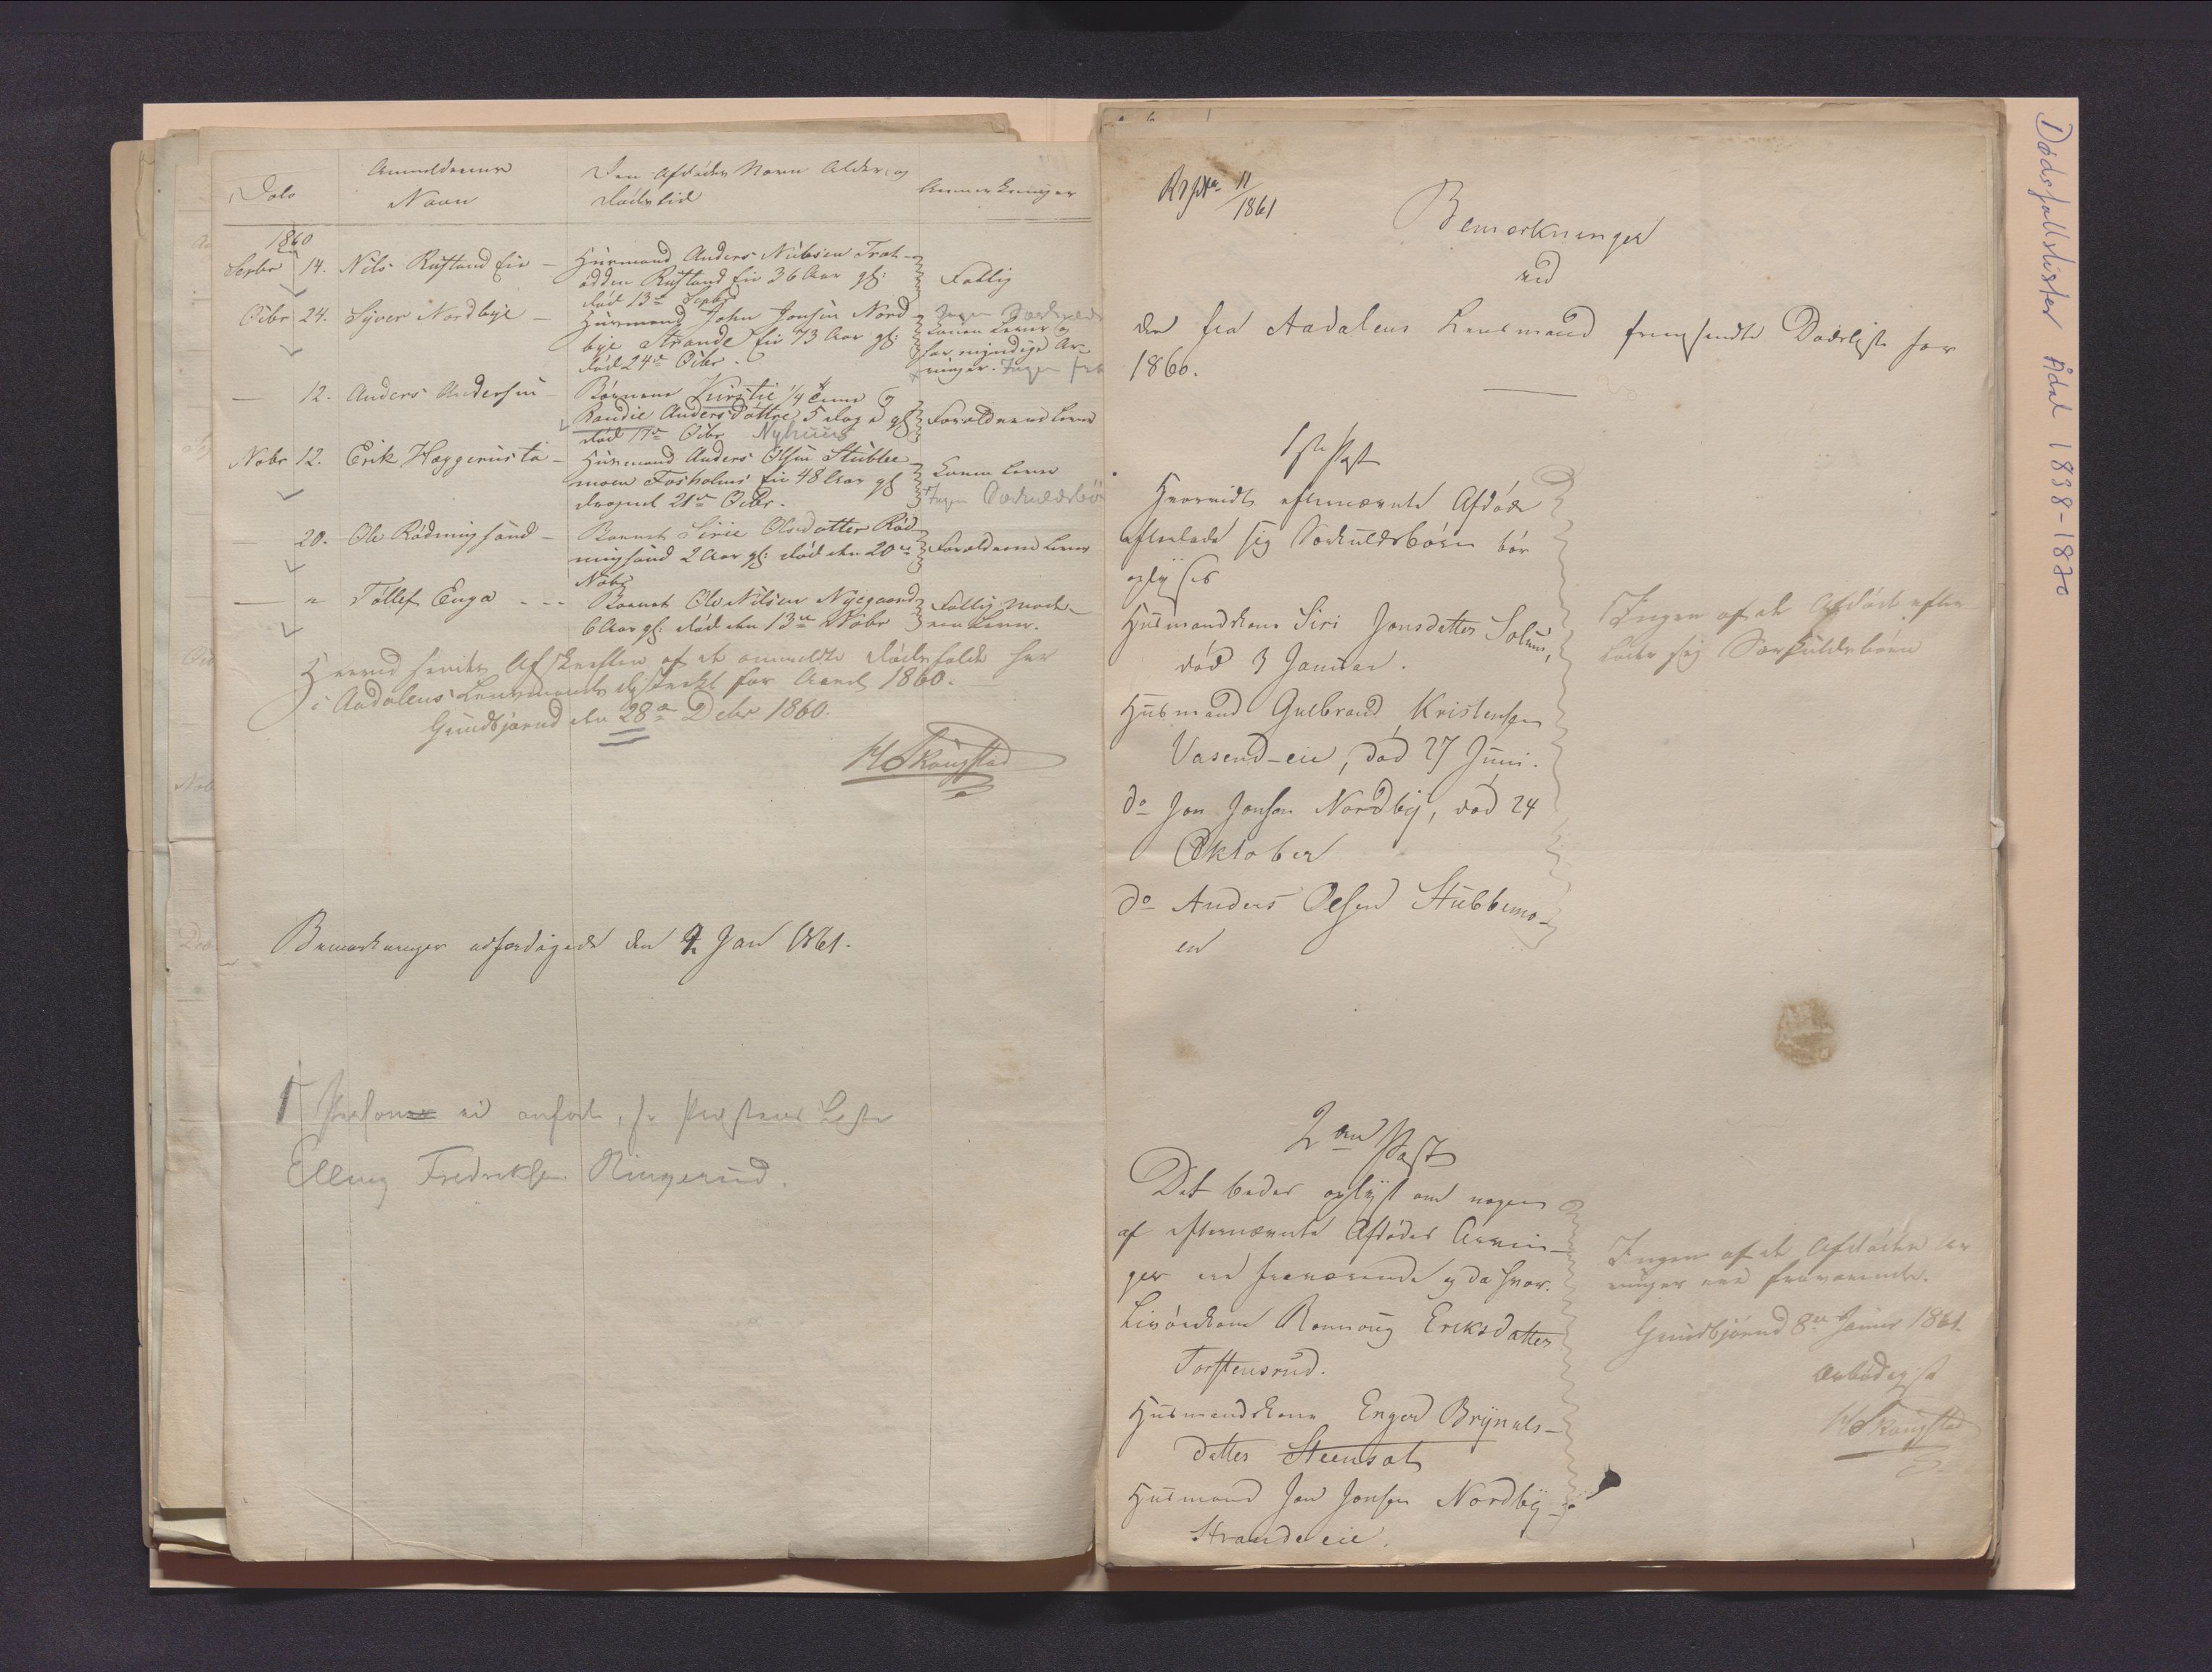 Dato
Anmeldernes
Navn
Den Afdødes Navn Alder, og
Dødstid
Anmerkninger
1860
Sepbr 14. Nils Rustand Eie - Husmand Anders Nubsen Træt-
ødden Rustand Eie 36 Aar gl: Fattig
død 13de Sepbr
Octbr 24. Syver Nordbye - Husmand John Jonsen Nord- Ingen Særkuldb
bye Strande Eie 73 Aar gl: Konen Lever og
død 24de Octbr. har myndige Ar-
vinger. Ingen
— 12. Anders Andersen - Børnene Kirstie 1/4 time og
Randie Andersdøttre 5 Dage gl Forældrene Lever
død 17de Octbr Nyhuus
Nobr 12. Erik Hæggerusta - Husmand Anders Olsen Stubbe-
moen Fosholms Eie 48 Aar gl Konen Lever
druknet 21de Octbr. Ingen Særkuldsbør
— 20. Ole Rødningsand - Barnet Sirie Olsdatter Rød-
ningsand 2 Aar gl: død den 20de Forældrene Lever
Nobr
— " Tollef Enga - - - Barnet Ole Nilsen Nyegaard Fattig Mode-
6 Aar gl: død den 13de Nobr ren Lever.
Herved sendes Afskriften af de anmeldte dødsfalde her
i Aadalens Lensmands distrikt for Aaret 1860.
Gundbjørud den 28de Decbr 1860.
H Skougstad
Bemærkninger udfærdigede den 2 Jan 1861.
1 Person ei anført, se Præstens Liste
Elling Fredriksen Ringerud.
11/1861
Bemærkninger
ved
den fra Aadalens Lensmand fremsendte Dødsliste for
1860.
1ste Post
Hvorvidt efternævnte Afdøde
efterlode sig Særkuldsbørn bør
oplyses
Husmandskone Siri Jonsdatter Solum,
død 3 Januar.
Husmand Gulbrand Kristensen
Vasend-eie, død 27 Juni.
do Jon Jonsen Nordby, død 24
Oktober
do Anders Olsen Stubbemo-
en
Ingen af de Afdøde efter-
lader sig Særkuldsbørn
2den Post
Det bedes oplyst om nogen
af efternævnte Afdødes Arvin-
ger ere fraværende og da hvor.
Livørekone Rannoug Eriksdatter
Torstensrud.
Husmandskone Enger Brynils-
datter Steensæt
Husmand Jon Jonsen Nordby-
Strande eie.
Ingen af de Afdødes Ar-
vinger ere fraværende.
Gundbjørud 8de Januar 1861.
Ærbødigst
H Skougstad
Dødsfallslister Ådal 1838-1870